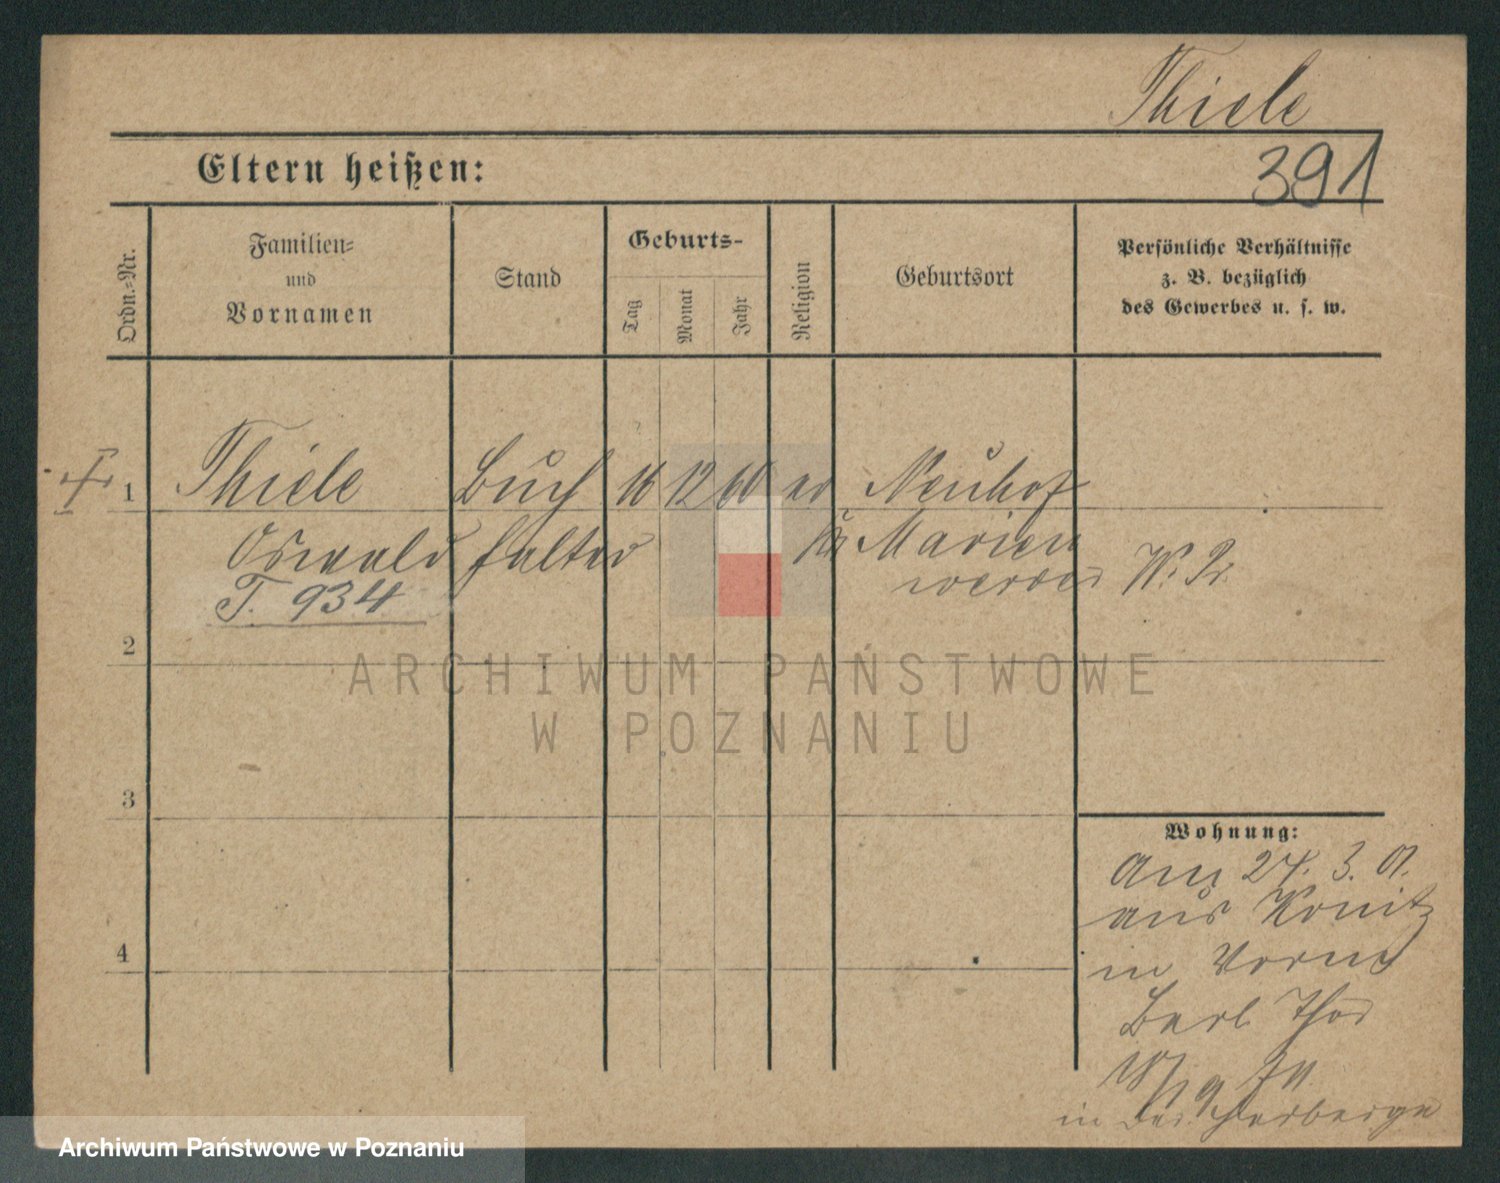 Thiele
391
Eltern heißen:
Ordn.-Nr.
Familien-
und
Vornamen
Stand
Geburts-
Tag
Monat
Jahr
Religion
Geburtsort
Persönliche Verhältnisse
z. B. bezüglich
des Gewerbes u. s. w.
1
Thiele Buch 16 12 60 ev Neuhof
Oswald halter Kr Marien
werder W. Pr.
T. 934
2
ARCHIWUM PAŃSTWOWE
W POZNANIU
3
Wohnung:
Am 24. 3. 01.
aus Konitz
in
Berl Thor
in der Herberge
4
Archiwum Państwowe w Poznaniu